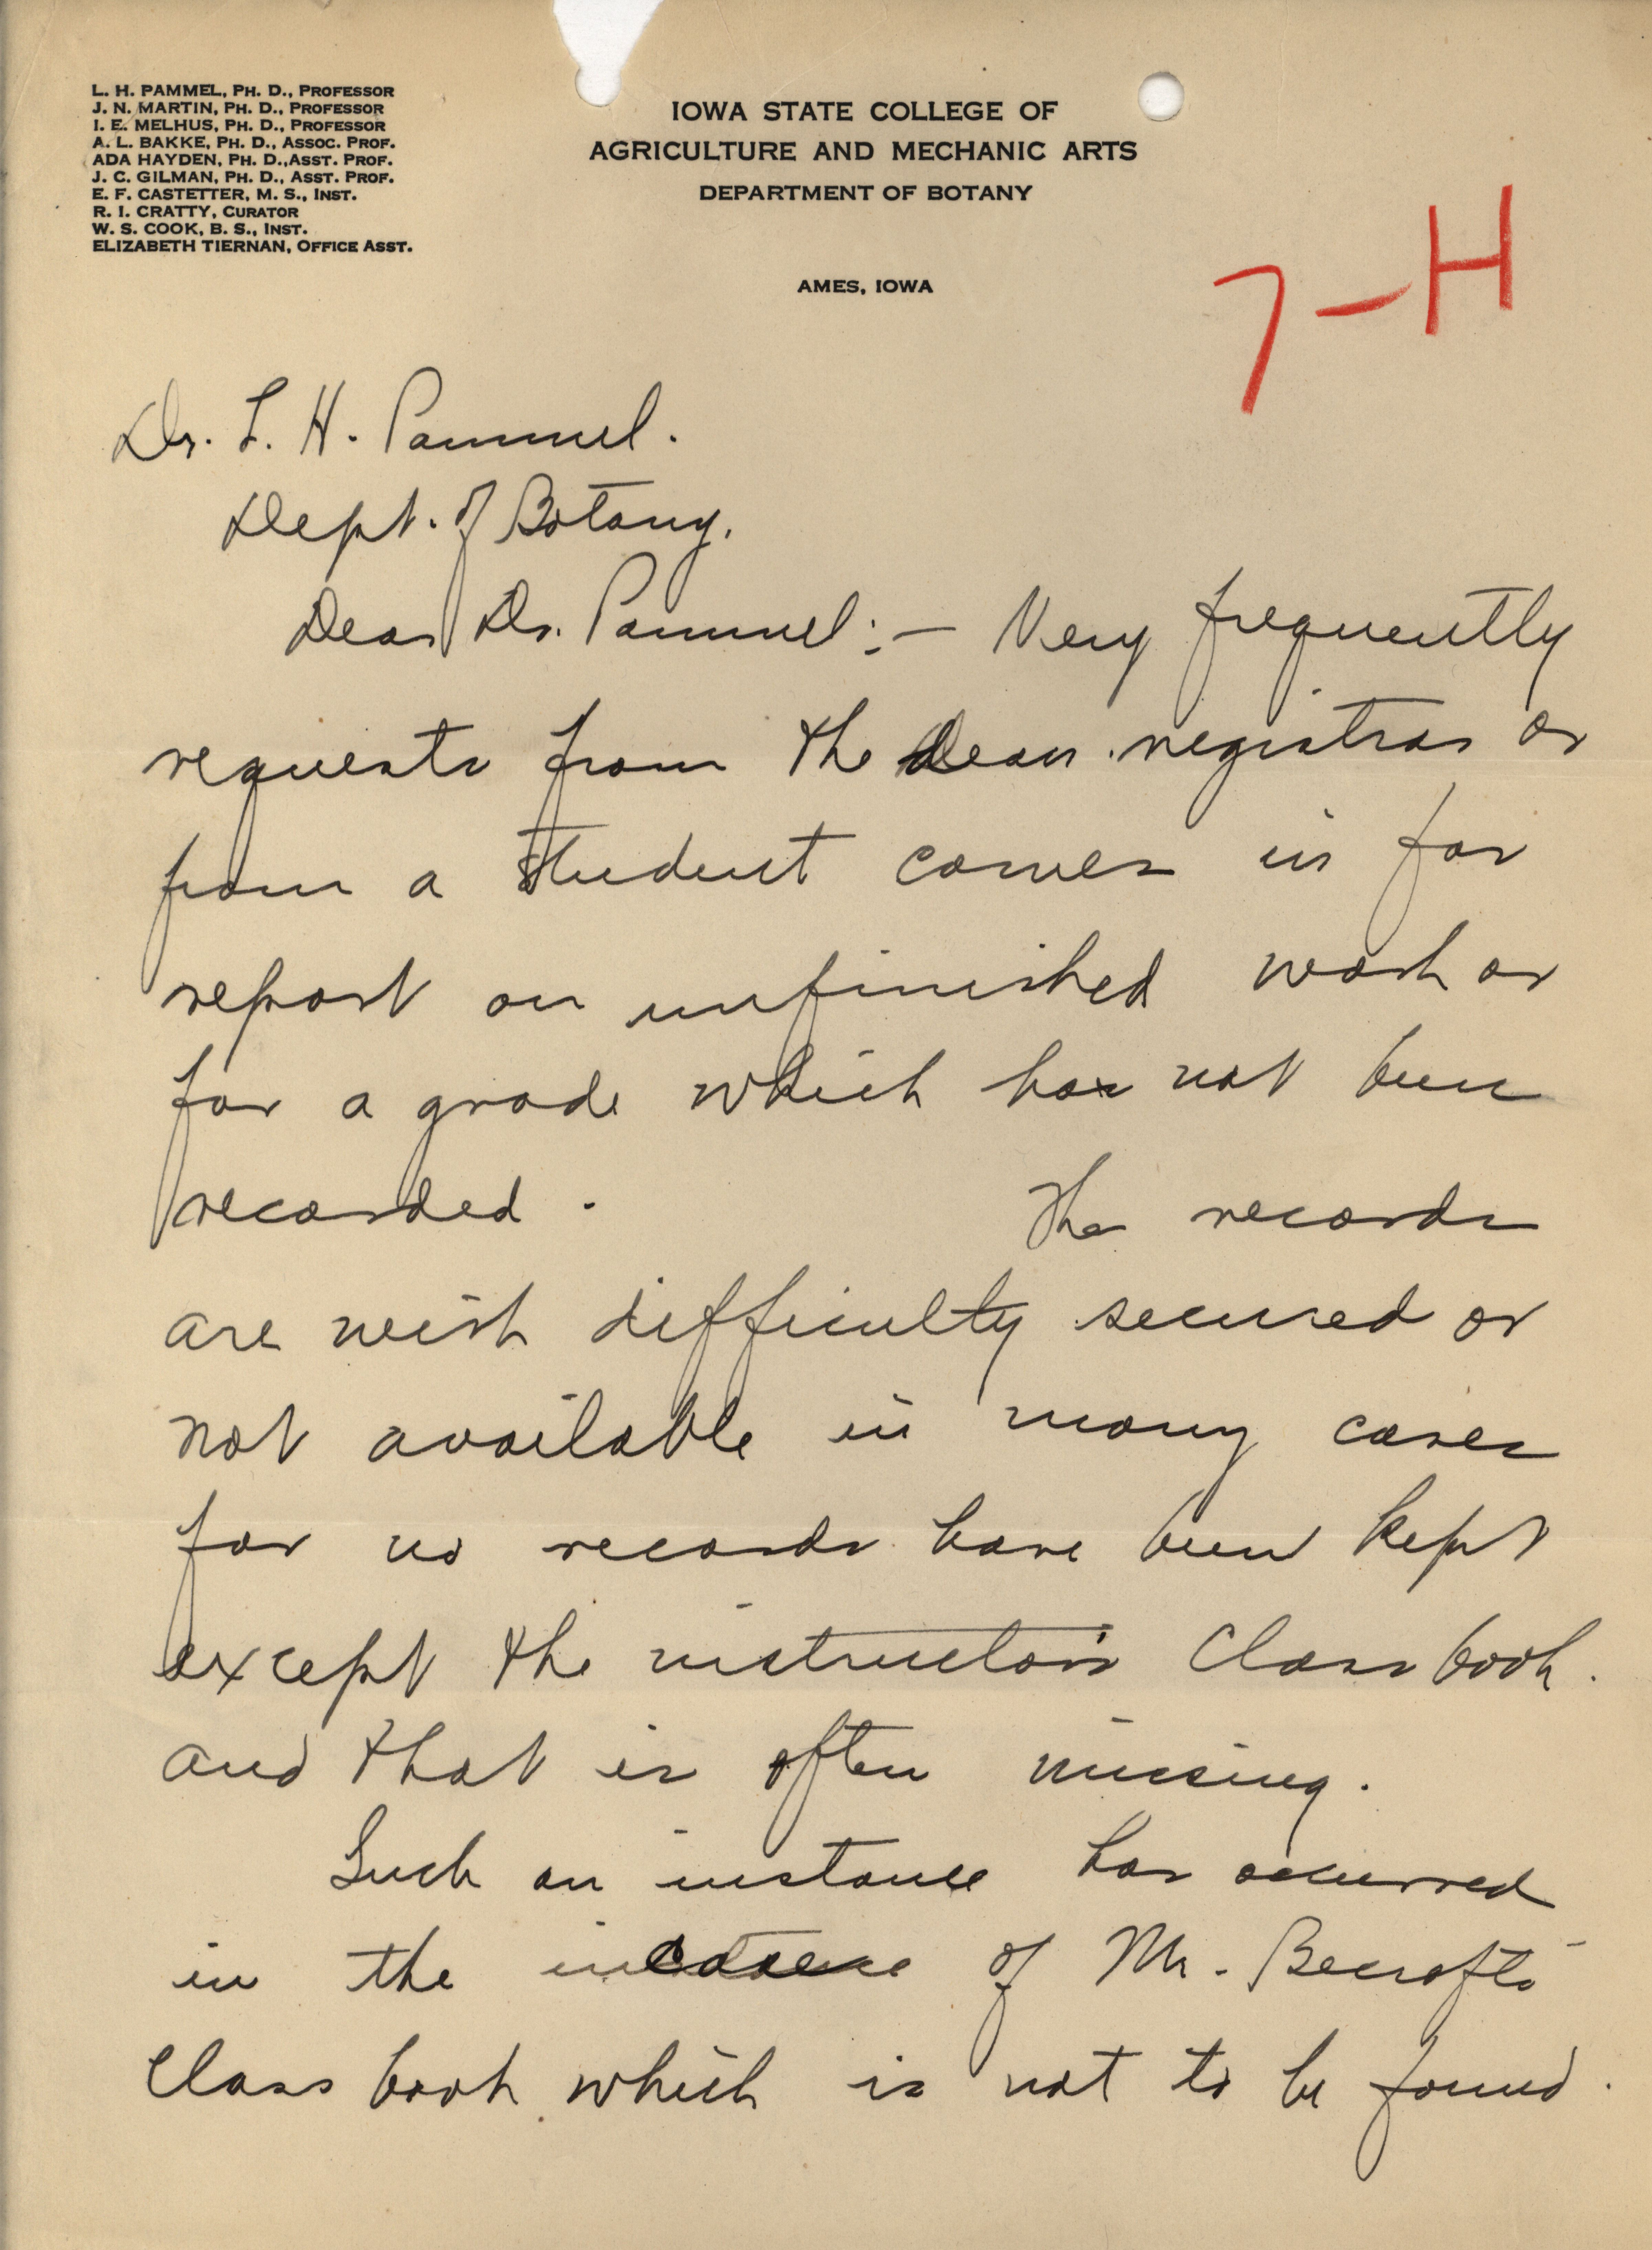 L. H. PAMMEL, PH. D., PROFESSOR
J. N. MARTIN, PH. D., PROFESSOR
I. E. MELHUS, PH. D., PROFESSOR
A. L. BAKKE, PH. D., ASSOC. PROF.
ADA HAYDEN, PH. D., ASST. PROF.
J. C. GILMAN, PH. D., ASST. PROF.
E. F. CASTETTER, M. S., INST.
R. I. CRATTY, CURATOR
W. S. COOK, B. S., INST.
ELIZABETH TIERNAN, OFFICE ASST.
IOWA STATE COLLEGE OF
AGRICULTURE AND MECHANIC ARTS
DEPARTMENT OF BOTANY
AMES, IOWA
7-H
Dr. L. H. Pammel.
Dept. of Botany.
Dear Dr. Pammel:- Very frequently
requests from the Dean registrar or
from a student comes in for
report on unfinished work or
for a grade which has not been
recorded. The records
are with difficulty secured or
not available in many cases
for no records have been kept
except the instructor's Class book.
and that is often missing.
Such an instance has occurred
in the case of Mr. Becroft's
Class book which is not to be found.